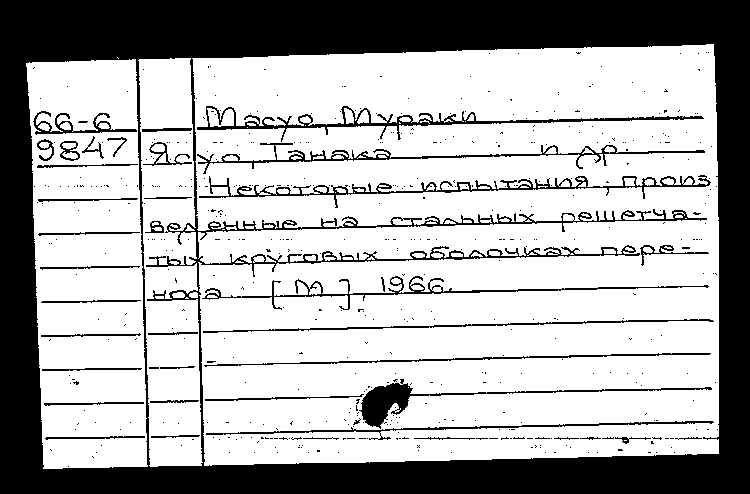 66-6 Масуо, Мураки
9847 Ясуо, Танака и др.
Некоторые испытания, произ
веденные на стальных решетча-
тых круговых оболочках пере-
носа [М], 1966.